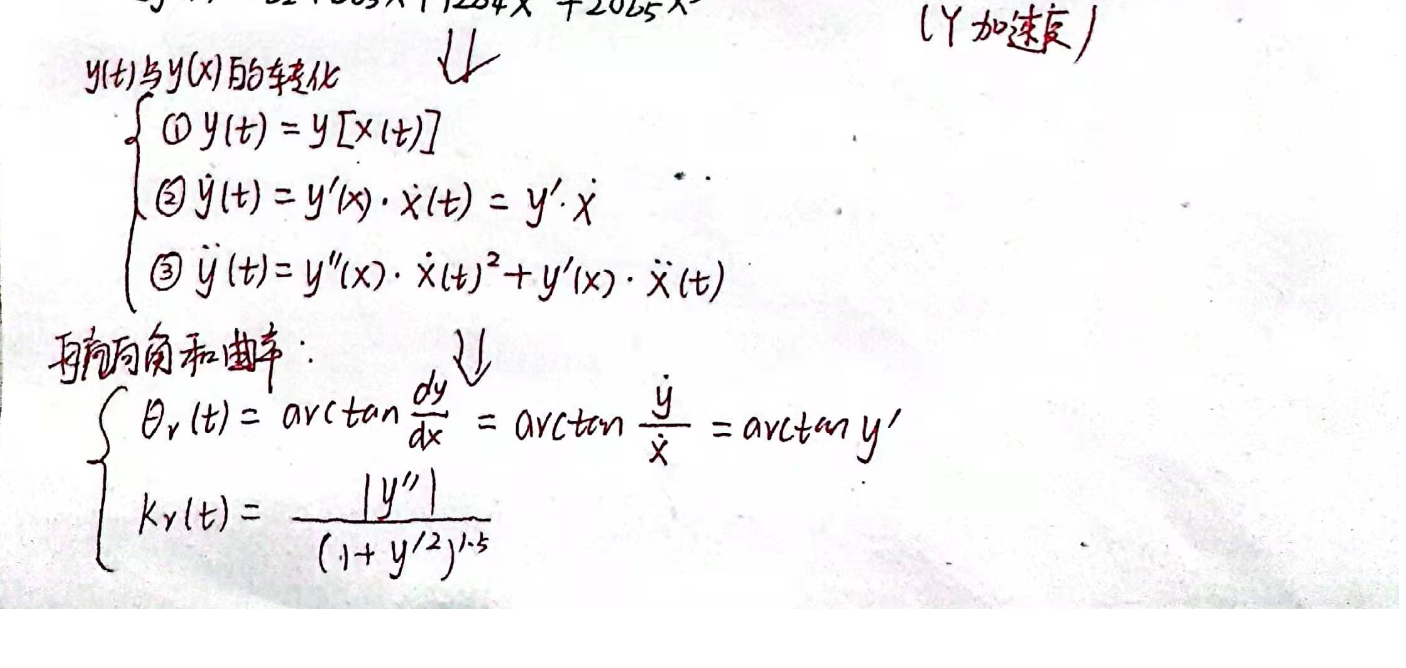 (Y 加速度)
y(t)与y(x)的转化
① y(t) = y[x(t)]
② ẏ(t) = y'(x)·ẋ(t) = y'·ẋ
③ ÿ(t) = y''(x)·ẋ(t)²+y'(x)·ẍ(t)
角和曲率:
θr(t) = arctan dy/dx = arctan ẏ/ẋ = arctan y'
kr(t) = |y''| / (1+y'²)^1.5